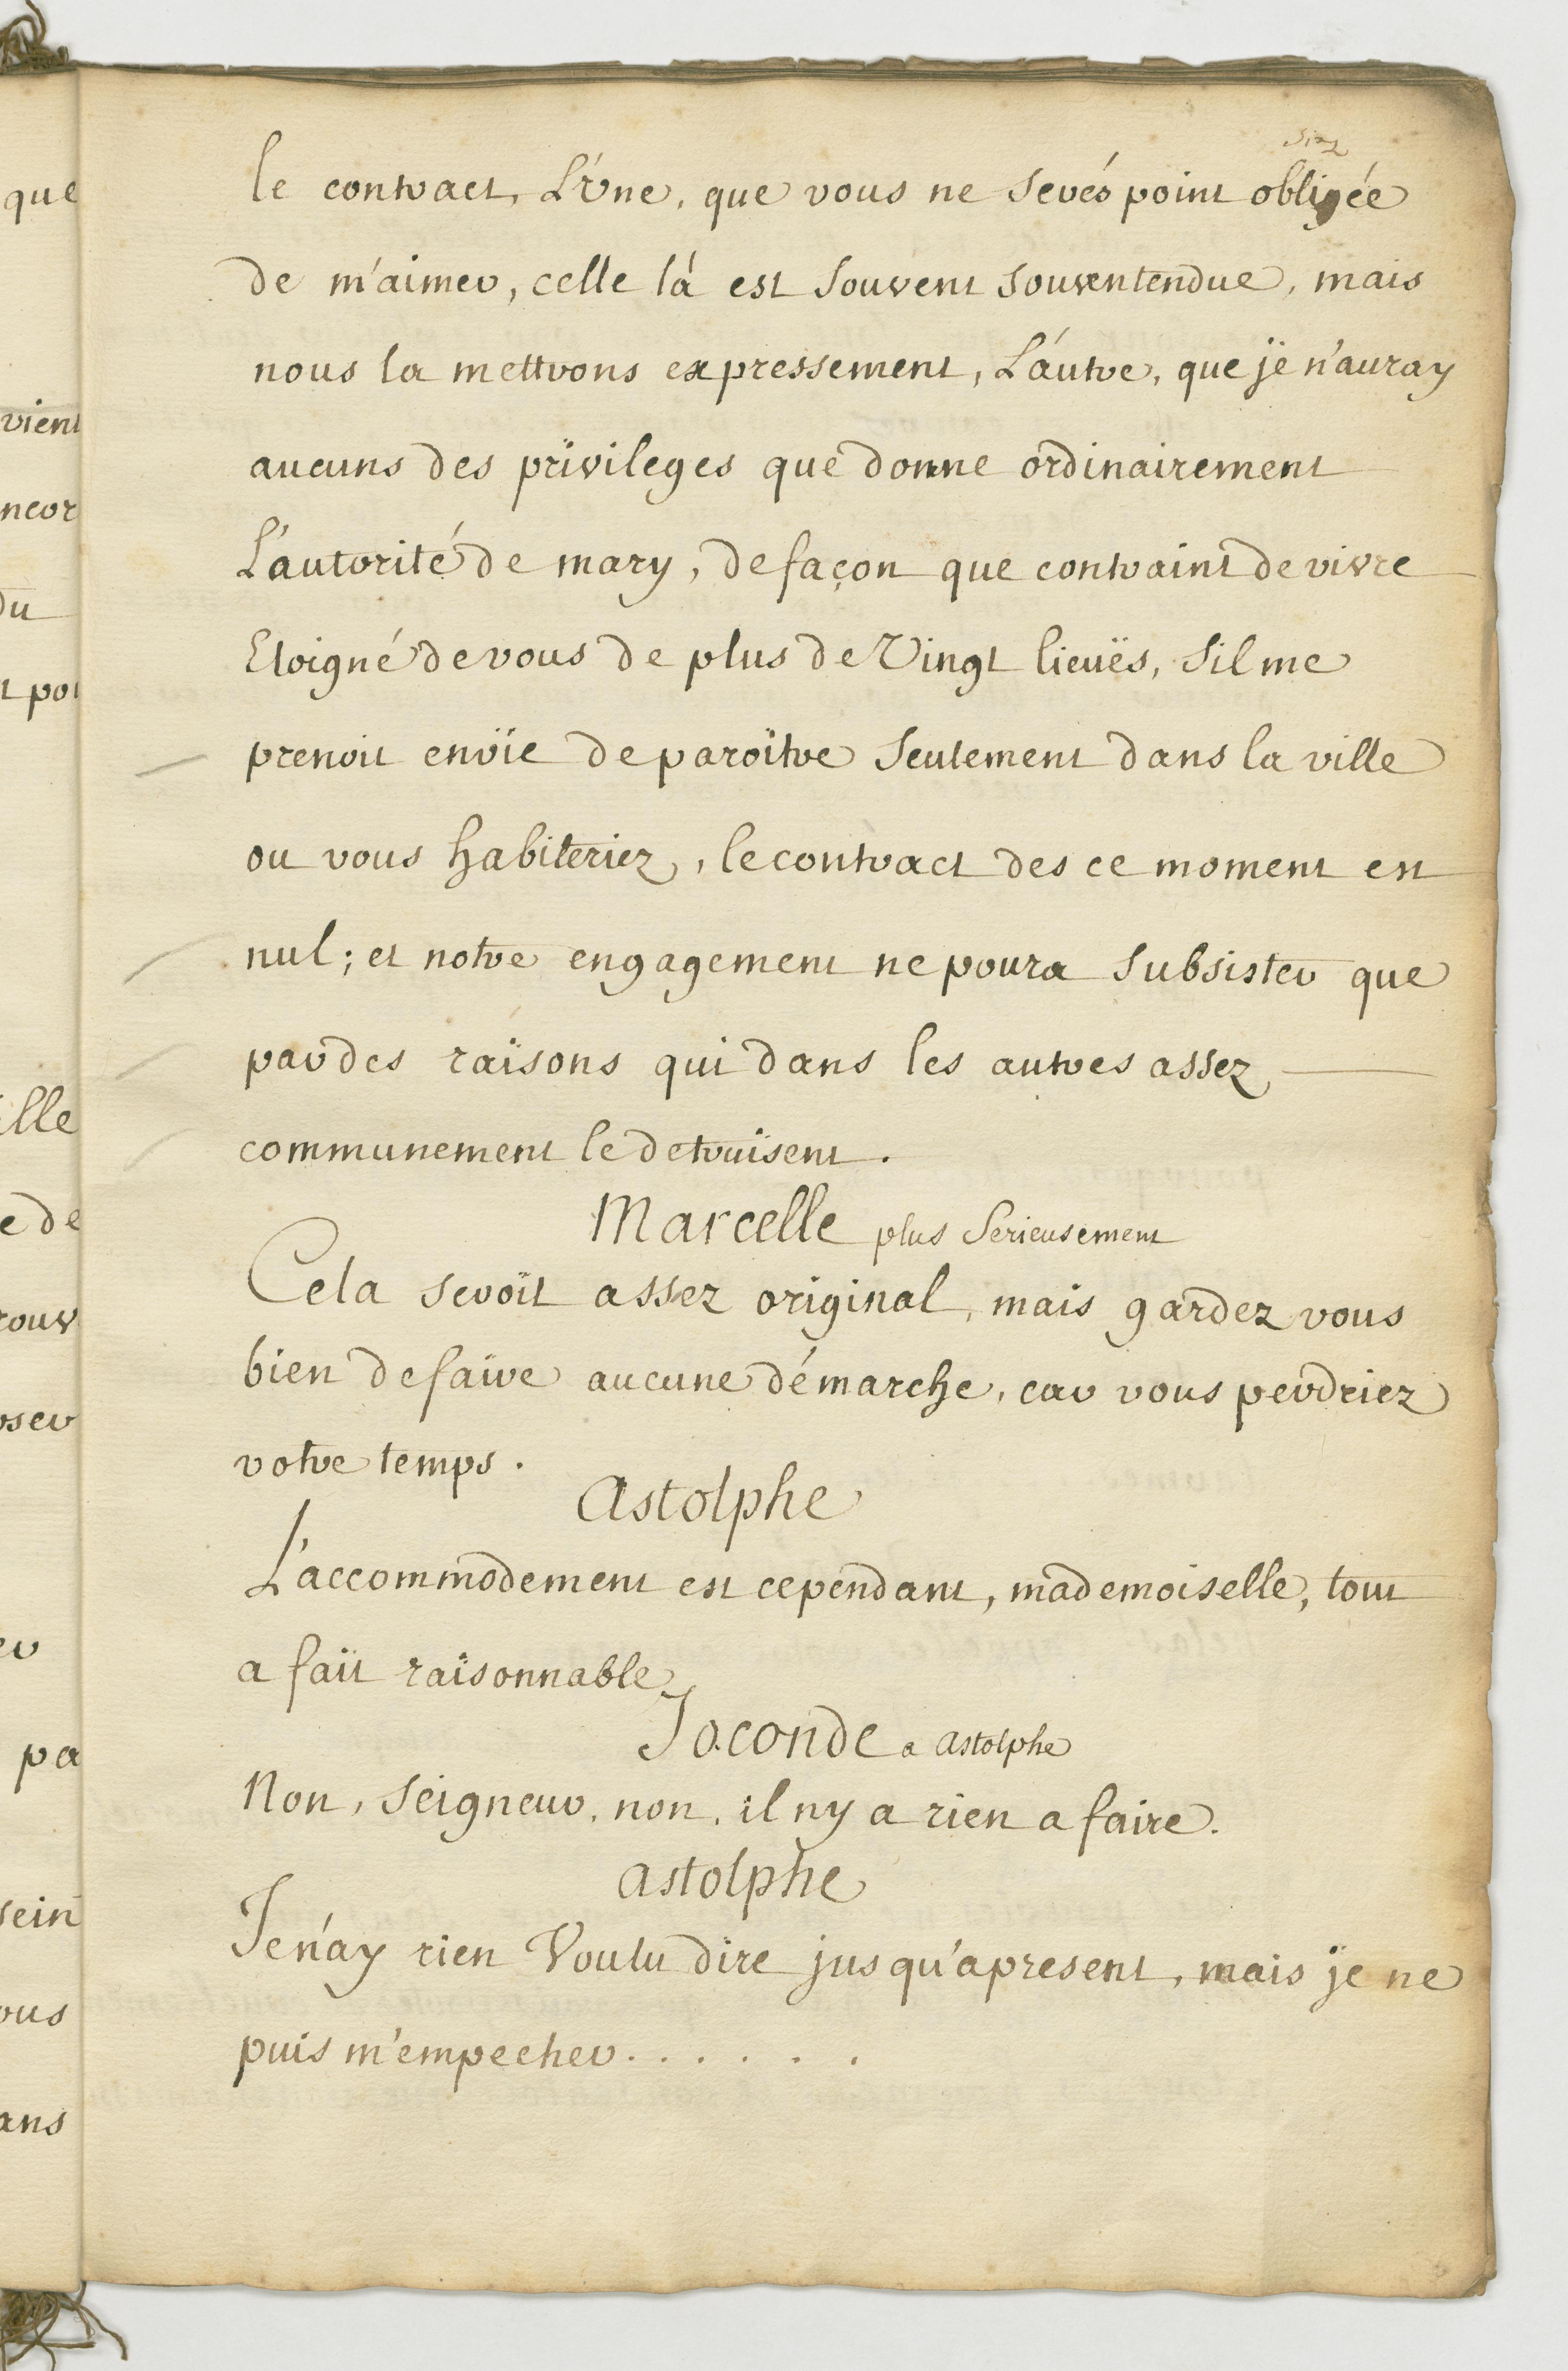 le contract, L'vne, que vous ne serés point obligée
de m'aimer, celle là est souvent sousentendue, mais
nous la mettrons expressement, L'autre, que je n'auray
aucuns des privileges que donne ordinairement
L'autorité de mary, de façon que contraint de vivre
Eloigné de vous de plus de Vingt lieuës, sil me
prenoit envie de paroître seulement dans la ville
ou vous habiteriez, le contract des ce moment est
nul; et notre engagement ne poura subsister que
par des raisons qui dans les autres assez
communement le detruisent.
Marcelle plus serieusement
Cela seroit assez original, mais gardez vous
bien de faire aucune démarche, car vous perdriez
votre temps.
Astolphe
L'accommodement est cependant, mademoiselle, tout
a fait raisonnable
Joconde a astolphe
Non, seigneur, non, il ny a rien a faire.
astolphe
Je n'ay rien Voulu dire jusqu'apresent, mais je ne
puis m'empecher......
que
vient
ncor
du
t pou
ille
e de
rouv
oser
er
pa
sein
ous
ans